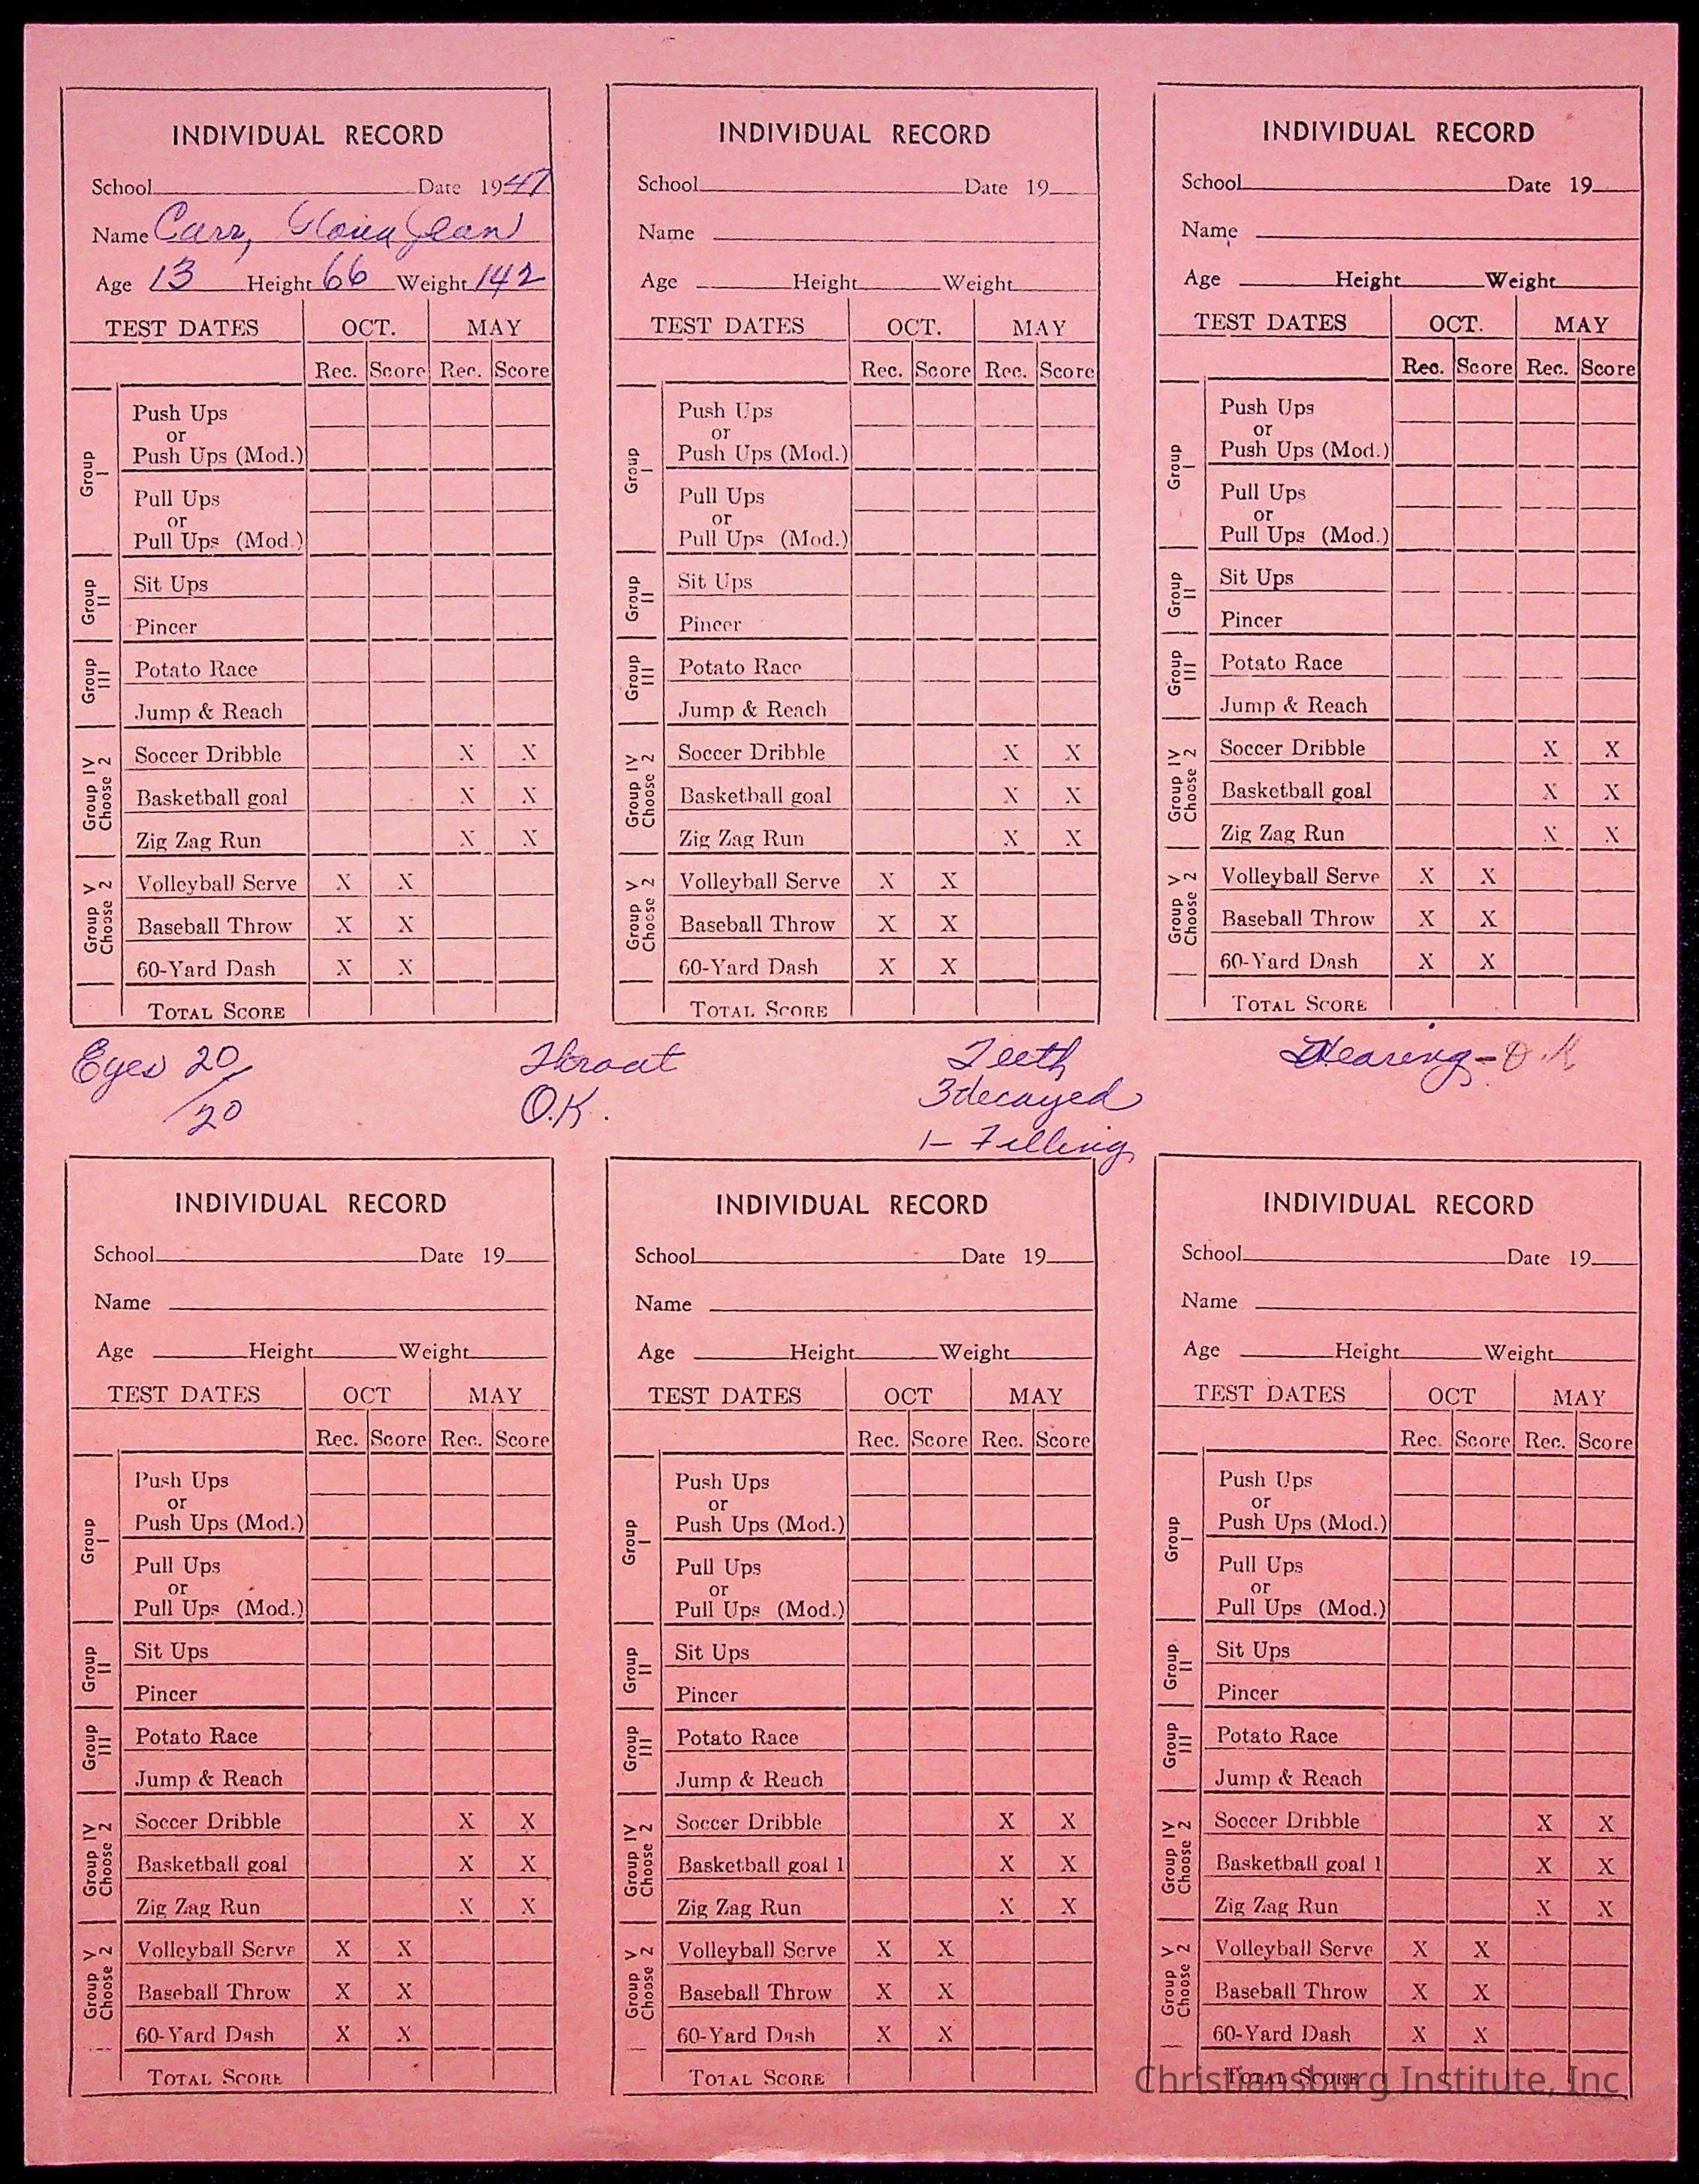 INDIVIDUAL RECORD
School Date 1947
Name Carr, Gloria Jean
Age 13 Height 66 Weight 142
TEST DATES OCT. MAY
Rec. Score Rec. Score
Group I
Push Ups
or
Push Ups (Mod.)
Pull Ups
or
Pull Ups (Mod.)
Group II
Sit Ups
Pincer
Group III
Potato Race
Jump & Reach
Group IV Choose 2
Soccer Dribble X X
Basketball goal X X
Zig Zag Run X X
Group V Choose 2
Volleyball Serve X X
Baseball Throw X X
60-Yard Dash X X
TOTAL SCORE
INDIVIDUAL RECORD
School Date 19
Name
Age Height Weight
TEST DATES OCT. MAY
Rec. Score Rec. Score
Group I
Push Ups
or
Push Ups (Mod.)
Pull Ups
or
Pull Ups (Mod.)
Group II
Sit Ups
Pincer
Group III
Potato Race
Jump & Reach
Group IV Choose 2
Soccer Dribble X X
Basketball goal X X
Zig Zag Run X X
Group V Choose 2
Volleyball Serve X X
Baseball Throw X X
60-Yard Dash X X
TOTAL SCORE
INDIVIDUAL RECORD
School Date 19
Name
Age Height Weight
TEST DATES OCT. MAY
Rec. Score Rec. Score
Group I
Push Ups
or
Push Ups (Mod.)
Pull Ups
or
Pull Ups (Mod.)
Group II
Sit Ups
Pincer
Group III
Potato Race
Jump & Reach
Group IV Choose 2
Soccer Dribble X X
Basketball goal X X
Zig Zag Run X X
Group V Choose 2
Volleyball Serve X X
Baseball Throw X X
60-Yard Dash X X
TOTAL SCORE
Eyes 20/
20
Throat
O.K.
Teeth
3 decayed
1- Filling
Hearing - O.K
INDIVIDUAL RECORD
School Date 19
Name
Age Height Weight
TEST DATES OCT MAY
Rec. Score Rec. Score
Group I
Push Ups
or
Push Ups (Mod.)
Pull Ups
or
Pull Ups (Mod.)
Group II
Sit Ups
Pincer
Group III
Potato Race
Jump & Reach
Group IV Choose 2
Soccer Dribble X X
Basketball goal X X
Zig Zag Run X X
Group V Choose 2
Volleyball Serve X X
Baseball Throw X X
60-Yard Dash X X
TOTAL SCORE
INDIVIDUAL RECORD
School Date 19
Name
Age Height Weight
TEST DATES OCT MAY
Rec. Score Rec. Score
Group I
Push Ups
or
Push Ups (Mod.)
Pull Ups
or
Pull Ups (Mod.)
Group II
Sit Ups
Pincer
Group III
Potato Race
Jump & Reach
Group IV Choose 2
Soccer Dribble X X
Basketball goal 1 X X
Zig Zag Run X X
Group V Choose 2
Volleyball Serve X X
Baseball Throw X X
60-Yard Dash X X
TOTAL SCORE
INDIVIDUAL RECORD
School Date 19
Name
Age Height Weight
TEST DATES OCT MAY
Rec. Score Rec. Score
Group I
Push Ups
or
Push Ups (Mod.)
Pull Ups
or
Pull Ups (Mod.)
Group II
Sit Ups
Pincer
Group III
Potato Race
Jump & Reach
Group IV Choose 2
Soccer Dribble X X
Basketball goal 1 X X
Zig Zag Run X X
Group V Choose 2
Volleyball Serve X X
Baseball Throw X X
60-Yard Dash X X
TOTAL SCORE
Christiansburg Institute, Inc